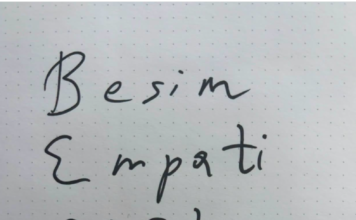 Besim
Empati